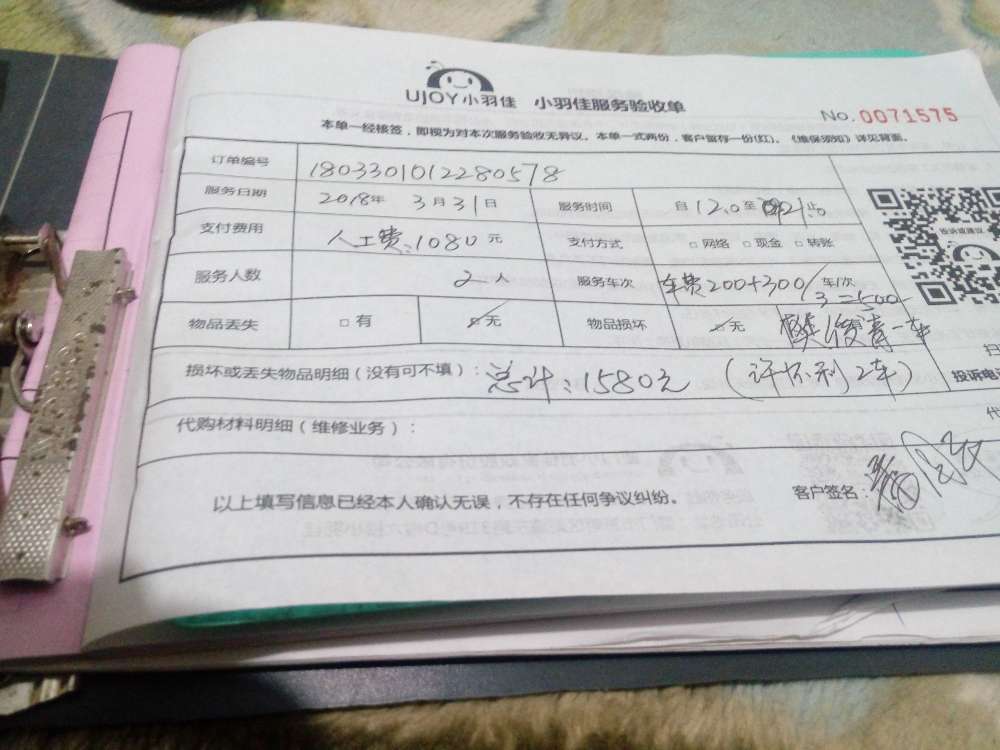 UJOY小羽佳 小羽佳服务验收单
No.0071575
本单一经核签，即视为对本次服务验收无异议。本单一式两份，客户留存一份(红)。《维保须知》详见背面。
订单编号 1803301012280578
服务日期 2018年 3月31日 服务时间 自12.0至 21止
支付费用 人工费:1080元 支付方式 □网络 □现金 □转账
投诉或建议
服务人数 2人 服务车次 车费200+300/车/次
3=500
物品丢失 □有 □无 物品损坏 □无 俊青一车
损坏或丢失物品明细（没有可不填）： 总计:1580元 (许怀利2车) 投诉电
代购材料明细（维修业务）：
以上填写信息已经本人确认无误，不存在任何争议纠纷。 客户签名：